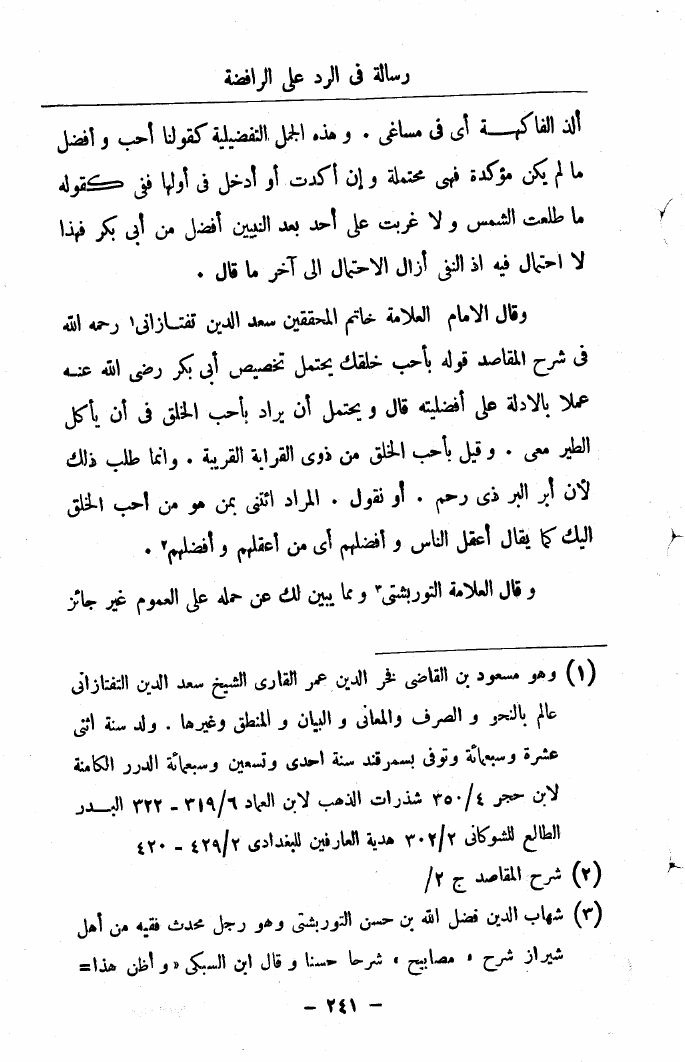 رسالة فى الرد على الرافضة
ألذ الفاكهـــة أى فى مساغى . و هذه الجمل التفضيلية كقولنا أحب و أفضل
ما لم يكن مؤكدة فهى محتملة و إن أكدت أو أدخل فى أولها ففى كقوله
ما طلعت الشمس و لا غربت على أحد بعد النبيين أفضل من أبى بكر فهذا
لا احتمال فيه اذ النفى أزال الاحتمال الى آخر ما قال .
وقال الامام العلامة خاتم المحققين سعد الدين تفتازانى١ رحمه الله
فى شرح المقاصد قوله بأحب خلقك يحتمل تخصيص أبى بكر رضى الله عنـه
عملا بالادلة على أفضليته قال و يحتمل أن يراد بأحب الخلق فى أن يأكل
الطير معى . و قيل بأحب الخلق من ذوى القرابة القريبة . وانما طلب ذلك
لأن أبر البر ذى رحم . أو نقول . المراد ائتنى بمن هو من أحب الخلق
اليك كما يقال أعقل الناس و أفضلهم أى من أعقلهم و أفضلهم٢ .
و قال العلامة التوربشتى٣ و مما يبين لك عن حمله على العموم غير جائز
(١) وهو مسعود بن القاضى فخر الدين عمر القارى الشيخ سعد الدين التفتازانى
عالم بالنحو و الصرف والمعانى و البيان و المنطق وغيرها . ولد سنة اثنى
عشرة وسبعمائة وتوفى بسمرقند سنة احدى وتسعين وسبعمائة الدرر الكامنة
لابن حجر ٣٥٠/٤ شذرات الذهب لابن العماد ٣١٩/٦ - ٣٢٢ البـــدر
الطالع للشوكانى ٣٠٢/٢ هدية العارفين للبغدادى ٤٢٩/٢ - ٤٢٠
(٢) شرح المقاصد ج ٢/
(٣) شهاب الدين فضل الله بن حسن التوربشتى وهو رجل محدث فقيه من أهل
شيراز شرح « مصابيح » شرحا حسنا و قال ابن السبكى « و أظن هذا=
- ٢٤١ -